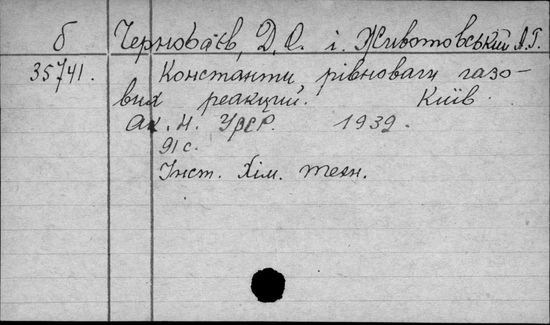 б Чернобаєв, Д. О. і. Животовський А. Г.
35741. Константи рівноваги газо-
вих реакций. Київ.
Ак. Н. УРСР. 1939.
91 с.
Інст. Хім. техн.